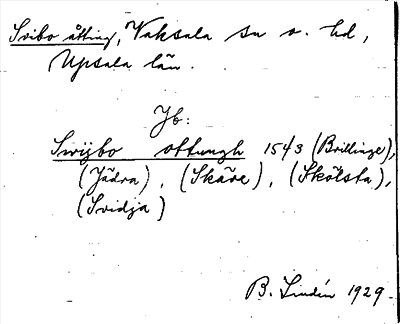 Svibo åtting, Vaksala sn o. hd,
Upsala län.
Jb:
Swijbo ottungh 1543 (Brillinge),
(Jädra), (Skäve), (Skölsta),
(Svidja)
B. Lindén 1929.